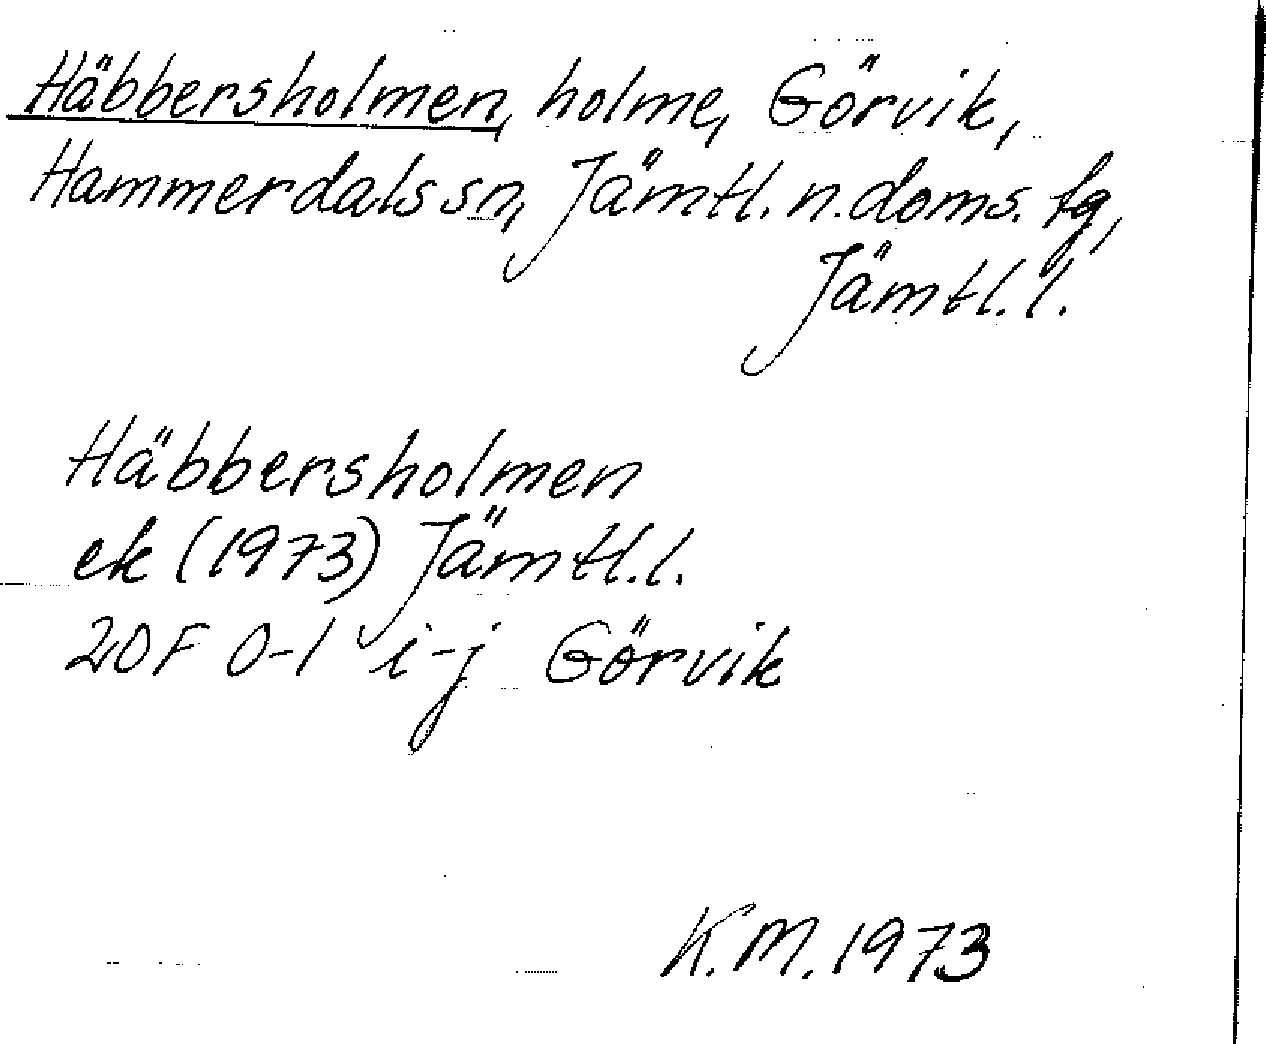 Häbbersholmen, holme, Görvik,
Hammerdals sn, Jämtl. n. doms. tg,
Jämtl. l.
Häbbersholmen
ek (1973) Jämtl. l.
20F 0-1 i-j Görvik
K.M. 1973